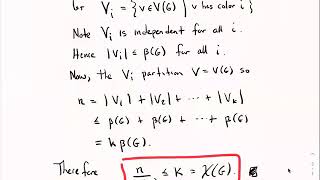 Let Vᵢ = {v ∈ V(G) | v has color i}
Note Vᵢ is independent for all i.
Hence |Vᵢ| ≤ β(G) for all i.
Now, the Vᵢ partition V = V(G) so
n = |V₁| + |V₂| + ⋯ + |Vₖ|
≤ β(G) + β(G) + ⋯ + β(G)
= kβ(G).
Therefore n ≤ k = χ(G).